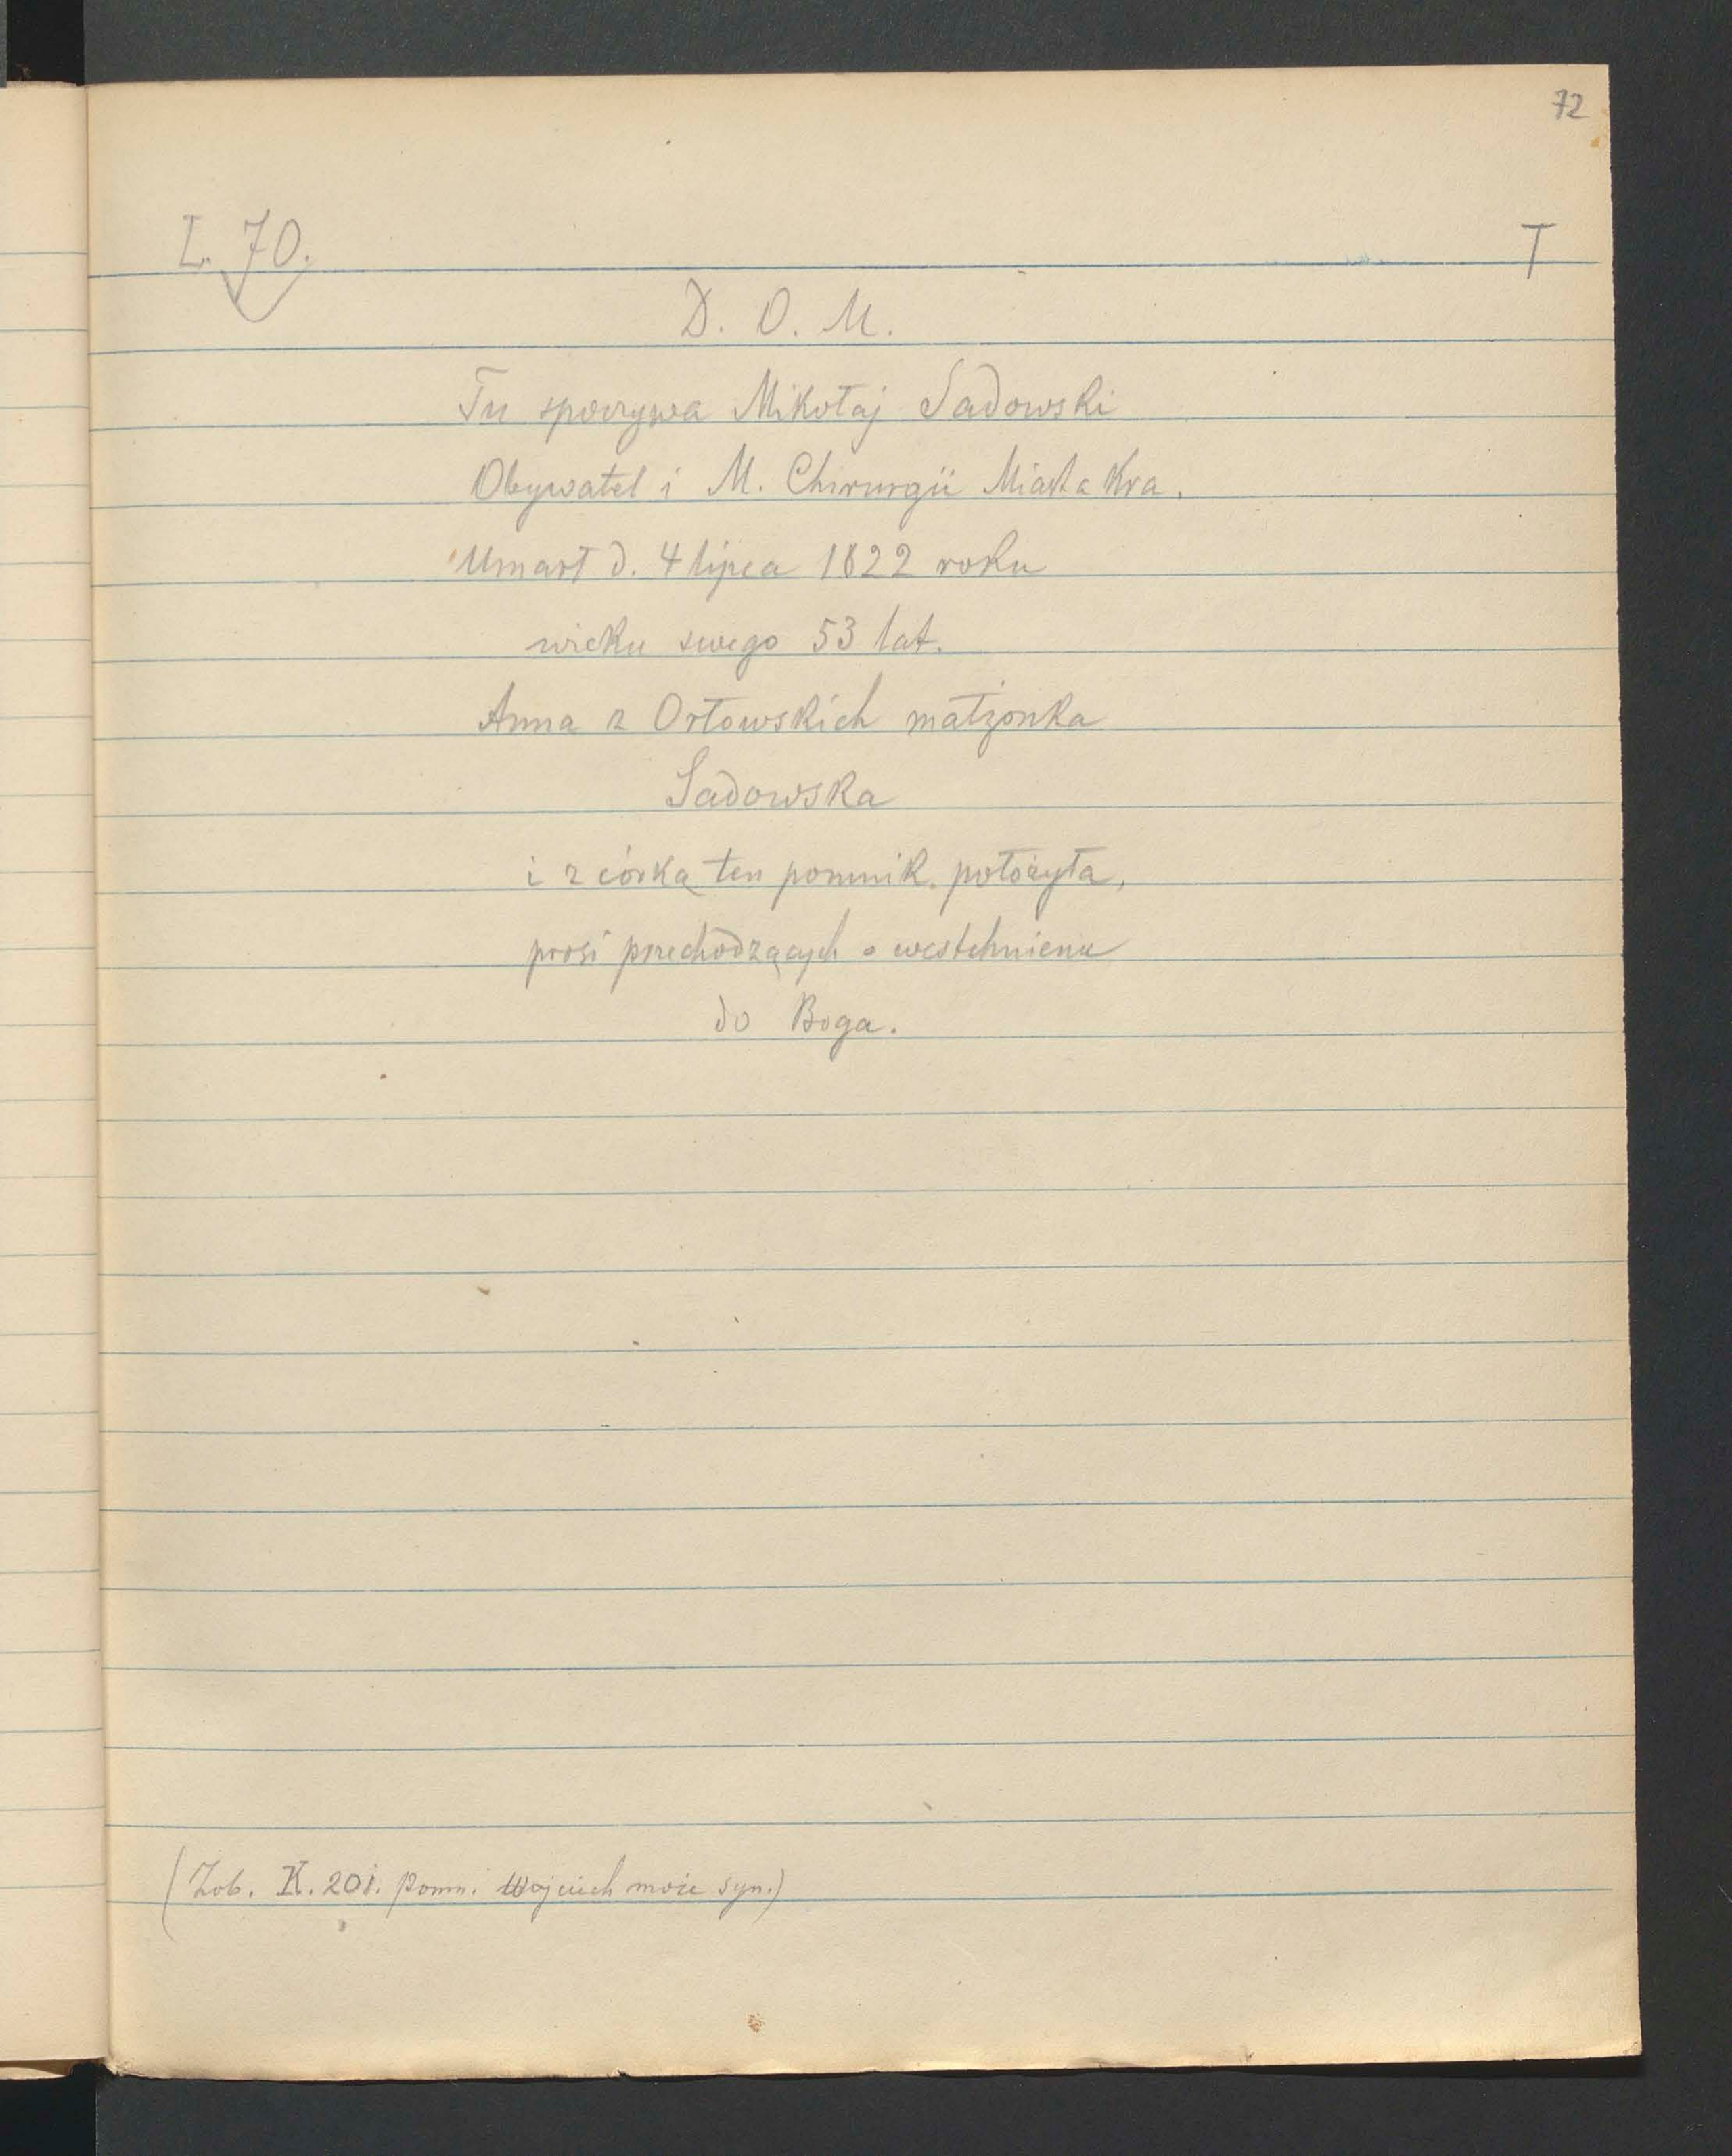 72
L. 70.
T
D. O. M.
Tu spoczywa Mikołaj Sadowski
Obywatel i M. Chirurgii Miasta Kra.
Umarł d. 4 lipca 1822 roku
wieku swego 53 lat.
Anna z Orłowskich małżonka
Sadowska
i z córką ten pomnik położyła,
prosi przechodzących o westchnienie
do Boga.
(Zob. K. 201. Pomn. Wojciech może syn.)